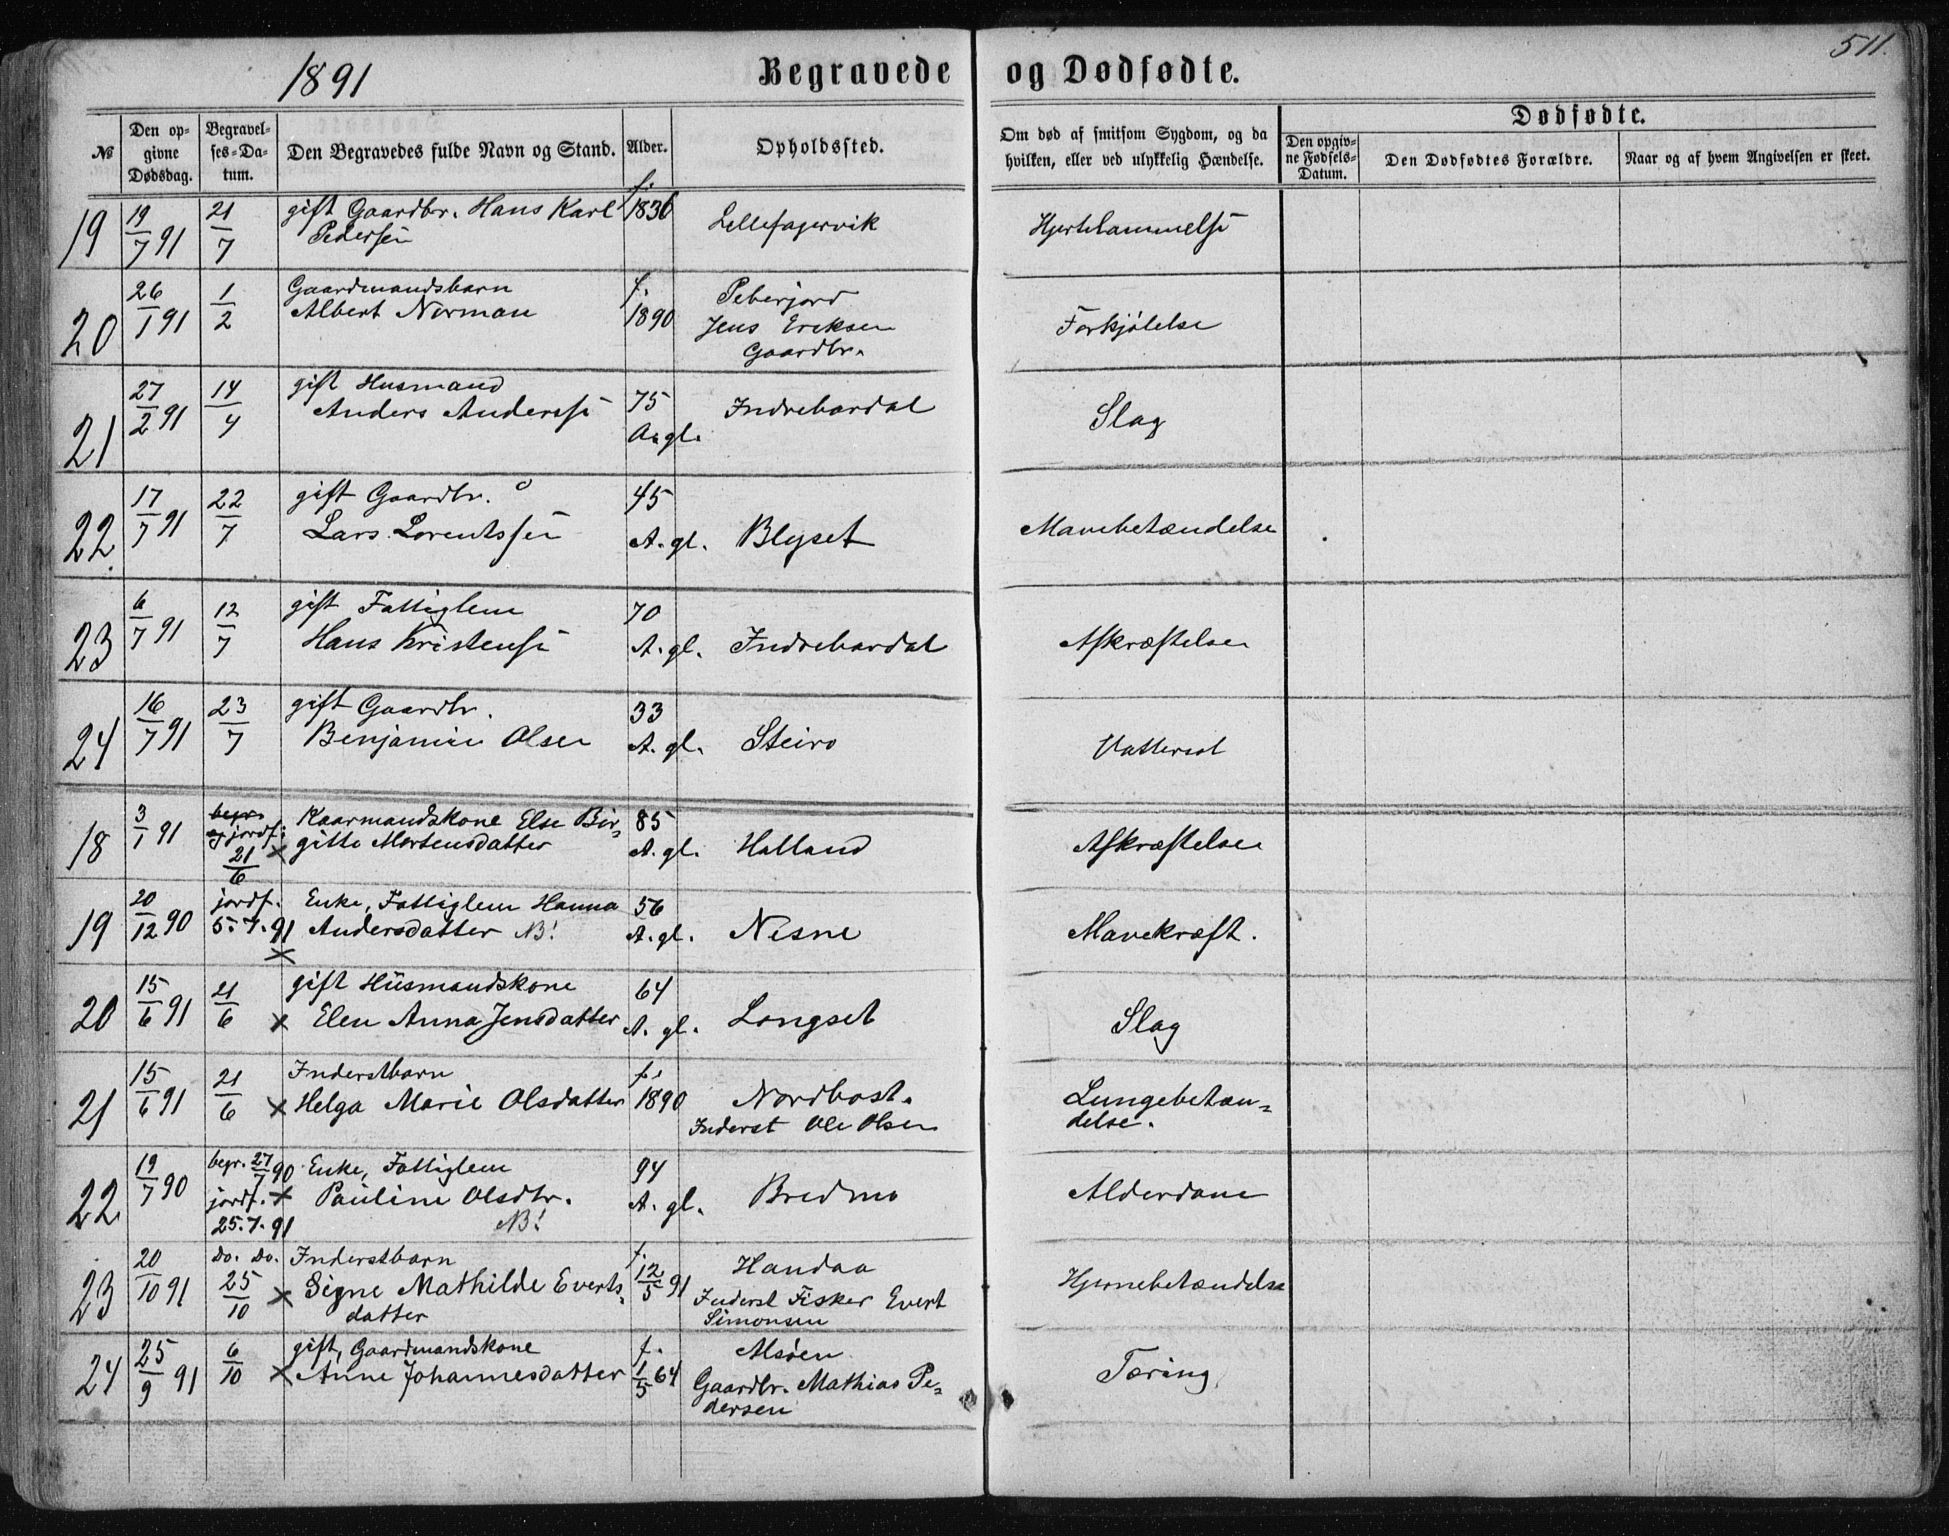 511.
1891
Begravede og Dødfødte.
№ | Den opgivne Dødsdag. | Begravelses-Datum. | Den Begravedes fulde Navn og Stand. | Alder. | Opholdssted. | Om død af smitsom Sygdom, og da hvilken, eller ved ulykkelig Hændelse. | Dødfødte. | Den opgivne Fødsels-Datum. | Den Dødfødtes Forældre. | Naar og af hvem Angivelsen er skeet.
19 | 19/7 91 | 21/7 | gift Gaardbr. Hans Karl Pedersen | f. 1836 | Lillefagervik | Hjertelammelse
20 | 26/1 91 | 1/2 | Gaardmandsbarn Albert Norman | f. 1890 | Peberjord Jens Eriksen Gaardbr. | Forkjølelse
21 | 27/2 91 | 14/4 | gift Husmand Anders Anderssen | 75 A. gl. | Indrebardal | Slag
22 | 17/7 91 | 22/7 | gift Gaardbr. Lars Lorentssen | 45 A. gl. | Blyset | Mavebetændelse
23 | 6/7 91 | 12/7 | gift Fattiglem Hans Kristensen | 70 A. gl. | Indrebardal | Afkræftelse
24 | 16/7 91 | 23/7 | gift Gaardbr. Benjamin Olsen | 33 A. gl. | Steiro | Vattersot
18 | 3/1 91 | begr. og jordf: 21/6 × | Kaarmandskone Else Birgitte Mortensdatter | 85 A. gl. | Halland | Afkræftelse
19 | 20/12 90 | jordf. 5.7.91 × | Enke, Fattiglem Hanna Andersdatter NB! | 56 A. gl. | Nesne | Mavekræft.
20 | 15/6 91 | 21/6 × | gift Husmandskone Elen Anna Jensdatter | 64 A. gl. | Longset | Slag
21 | 15/6 91 | 21/6 × | Inderstbarn Helga Marie Olsdatter | f. 1890 | Nordbost. Inderst Ole Olsen | Lungebetændelse.
22 | 19/7 90 | begr. 27/7 90 jordf. × 25.7.91 | Enke, Fattiglem Pauline Olsdtr. NB! | 94 A. gl. | Bredmo | Alderdom
23 | 20/10 91 | Do. Do. 25/10 × | Inderstbarn Signe Mathilde Evertsdatter | f. 12/5 91 | Handaa Inderst Fisker Evert Simonsen | Hjernebetændelse
24 | 25/9 91 | 6/10 × | gift, Gaardmandskone Anne Johannesdatter | f. 1/5 64 | Alsøen Gaardbr. Mathias Pedersen | Tæring